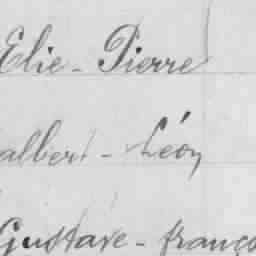 Elie - Pierre
albert - Léon
Gustave - franço